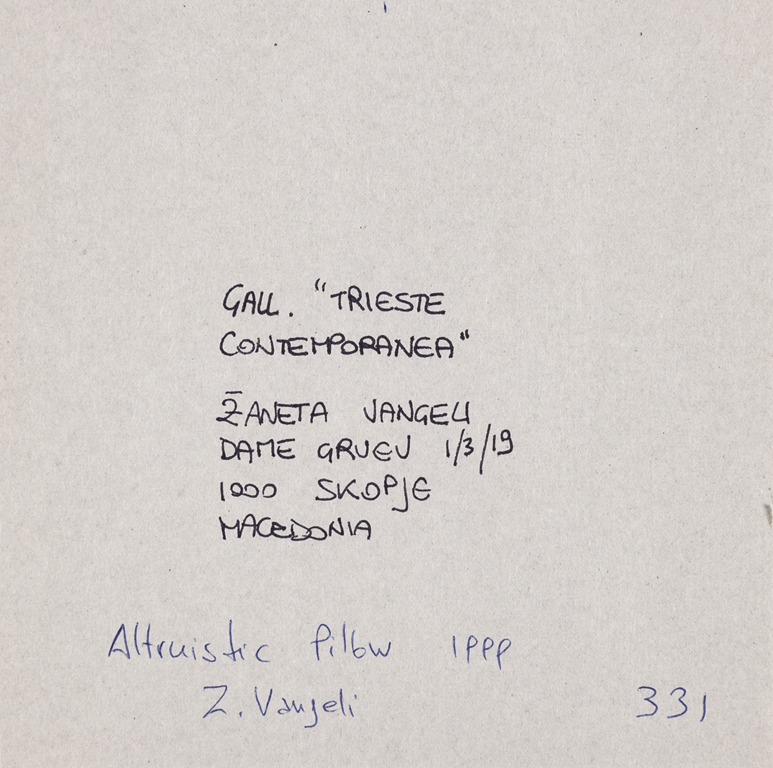 GALL. "TRIESTE
CONTEMPORANEA"
ŽANETA VANGELI
DAME GRUEV 1/3/19
1000 SKOPJE
MACEDONIA
Altruistic Pillow 1999
Z. Vangeli 331